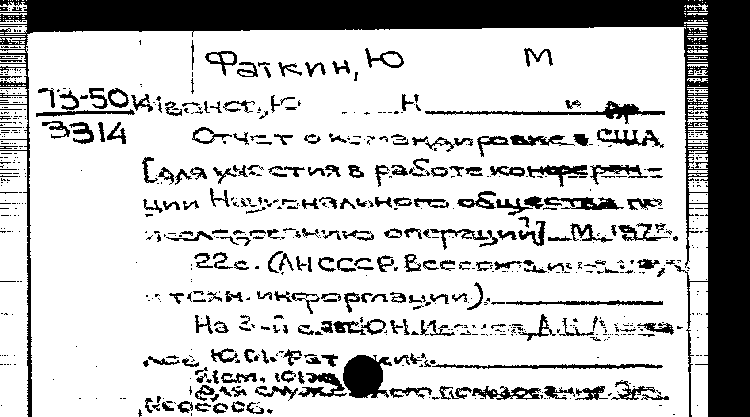 Фаткин, Ю М
73-50
3314
Иванов, Ю Н и др
Отчет о командировке в США
[для участия в работе конферен-
ции Национального общества по
исследованию операций]. М. 1973.
22с. (АН СССР. Всесоюз. ин-т
и техн. информации).
На 2-й с. авт.: Ю.Н. Иванов, А.
Ю.М. Фаткин.
Для служебного пользования. Экз.